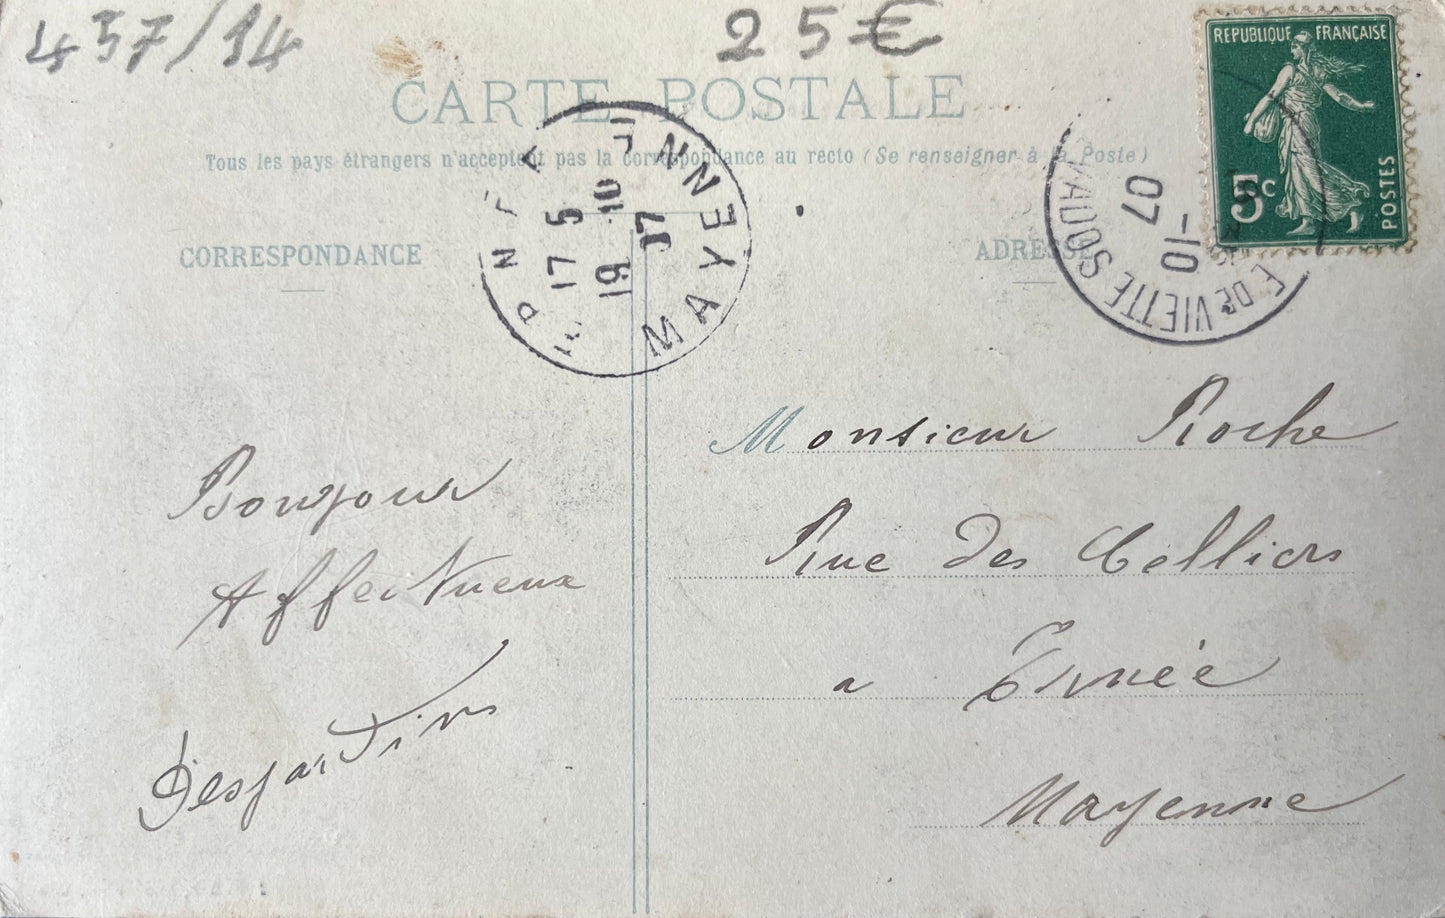 437/14
25€
REPUBLIQUE FRANÇAISE
5c
POSTES
CARTE POSTALE
Tous les pays étrangers n'acceptent pas la correspondance au recto (Se renseigner à la Poste)
MAYENNE
17 5
19 10
07
VIETTE
-10
07
CORRESPONDANCE
ADRESSE
Bonjour
Affectueux
Desjardins
Monsieur Roche
Rue des Celliers
a Ernée
Mayenne